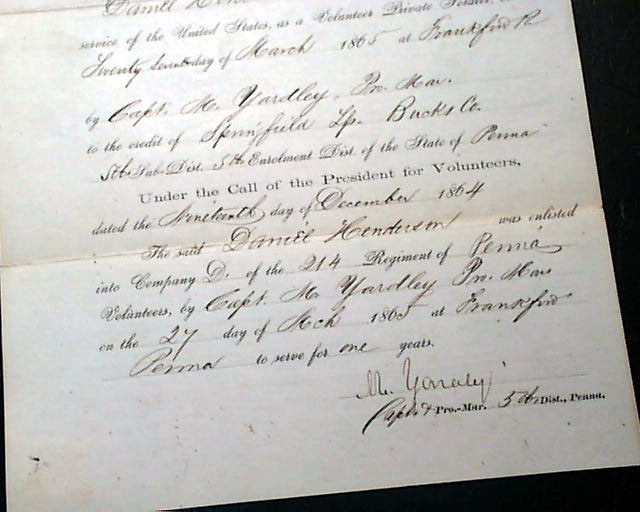 Daniel
service of the United States, as a Volunteer Private Soldier,
Twenty Seventh day of March 1865 at Frankford
by Capt. M. Yardley, Pro. Mar.
to the credit of Springfield Tp. Bucks Co.
5th Sub-Dist. 5th Enrolment Dist. of the State of Penna
Under the Call of the President for Volunteers,
dated the Nineteenth day of December 1864
The said Daniel Henderson was enlisted
into Company D. of the 214 Regiment of Penna
Volunteers, by Capt. M. Yardley Pro. Mar
on the 27 day of Mch 1865 at Frankford
Penna to serve for one years.
M. Yardley
Capt. & Pro.-Mar. 5th Dist., Penna.